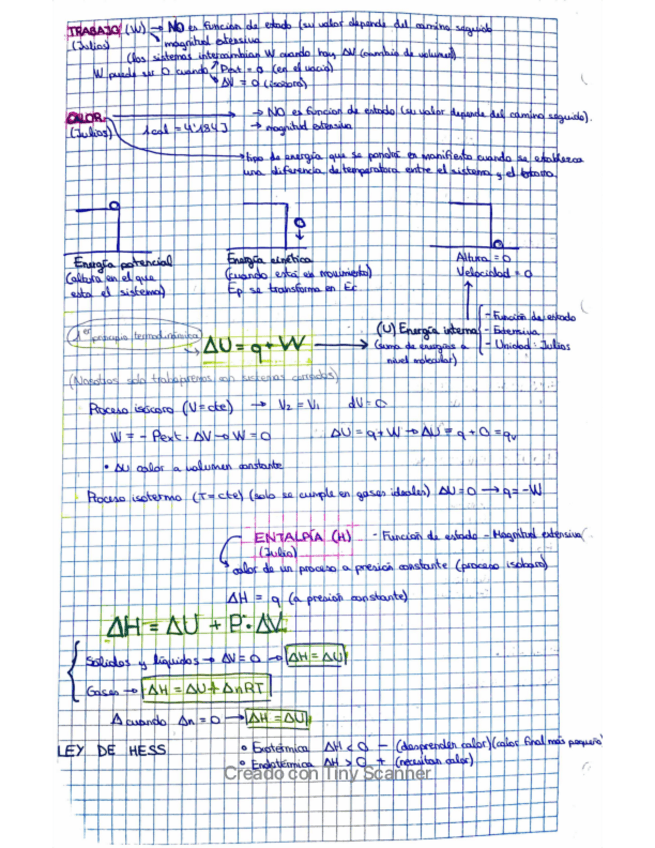 TRABAJO (W) → NO es función de estado (su valor depende del camino seguido
(Julios) magnitud extensiva
(los sistemas intercambian W cuando hay ΔV (cambio de volumen)
W puede ser 0 cuando Pext = 0 (en el vacío)
ΔV = 0 (isocoro)
CALOR → NO es función de estado (su valor depende del camino seguido).
(Julios) 1 cal = 4'184 J → magnitud extensiva
tipo de energía que se pondrá en manifiesto cuando se establezca
una diferencia de temperatura entre el sistema y el
Energía potencial
(altura en el que
esta el sistema)
Energía cinética
(cuando está en movimiento)
Ep se transforma en Ec
Altura = 0
Velocidad = 0
1er principio termodinámica
ΔU = q + W
(U) Energía interna
(suma de energías a
nivel molecular)
- Función de estado
- Extensiva
- Unidad: Julios
(Nosotros solo trabajaremos con sistemas cerrados)
Proceso isócoro (V=cte) → V2 = V1 dV = 0
W = - Pext · ΔV → W = 0 ΔU = q + W → ΔU = q + 0 = qv
• ΔU calor a volumen constante
Proceso isotermo (T=cte) (solo se cumple en gases ideales) ΔU = 0 → q = -W
ENTALPÍA (H) - Función de estado - Magnitud extensiva
(Julio)
calor de un proceso a presión constante (proceso isobaro)
ΔH = q (a presión constante)
ΔH = ΔU + P·ΔV
Sólidos y líquidos → ΔV = 0 → ΔH = ΔU
Gases → ΔH = ΔU + ΔnRT
cuando Δn = 0 → ΔH = ΔU
LEY DE HESS
• Exotérmica ΔH < 0 - (desprender calor) (calor final más pequeño
• Endotérmica ΔH > 0 + (necesitan calor)
Creado con Tiny Scanner